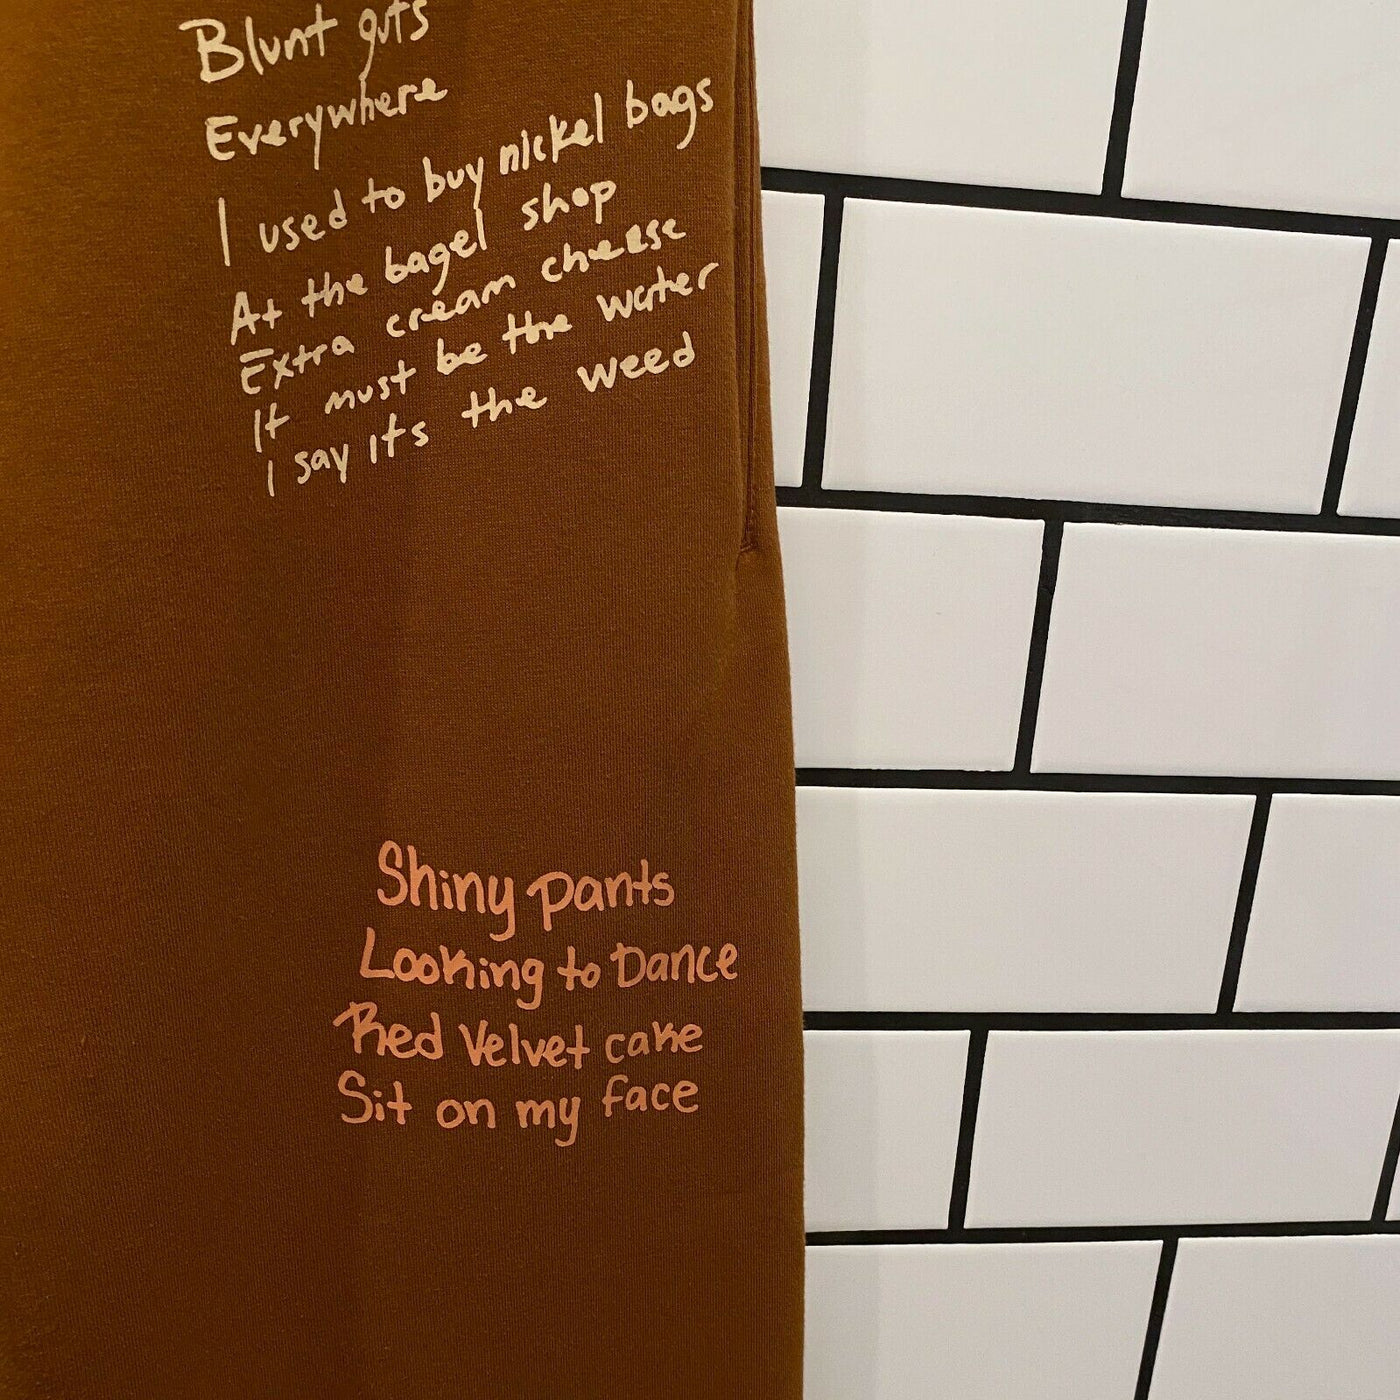 Blunt guts
Everywhere
I used to buy nickel bags
At the bagel shop
Extra cream cheese
It must be the water
I say its the weed
Shiny pants
Looking to Dance
Red Velvet cake
Sit on my face